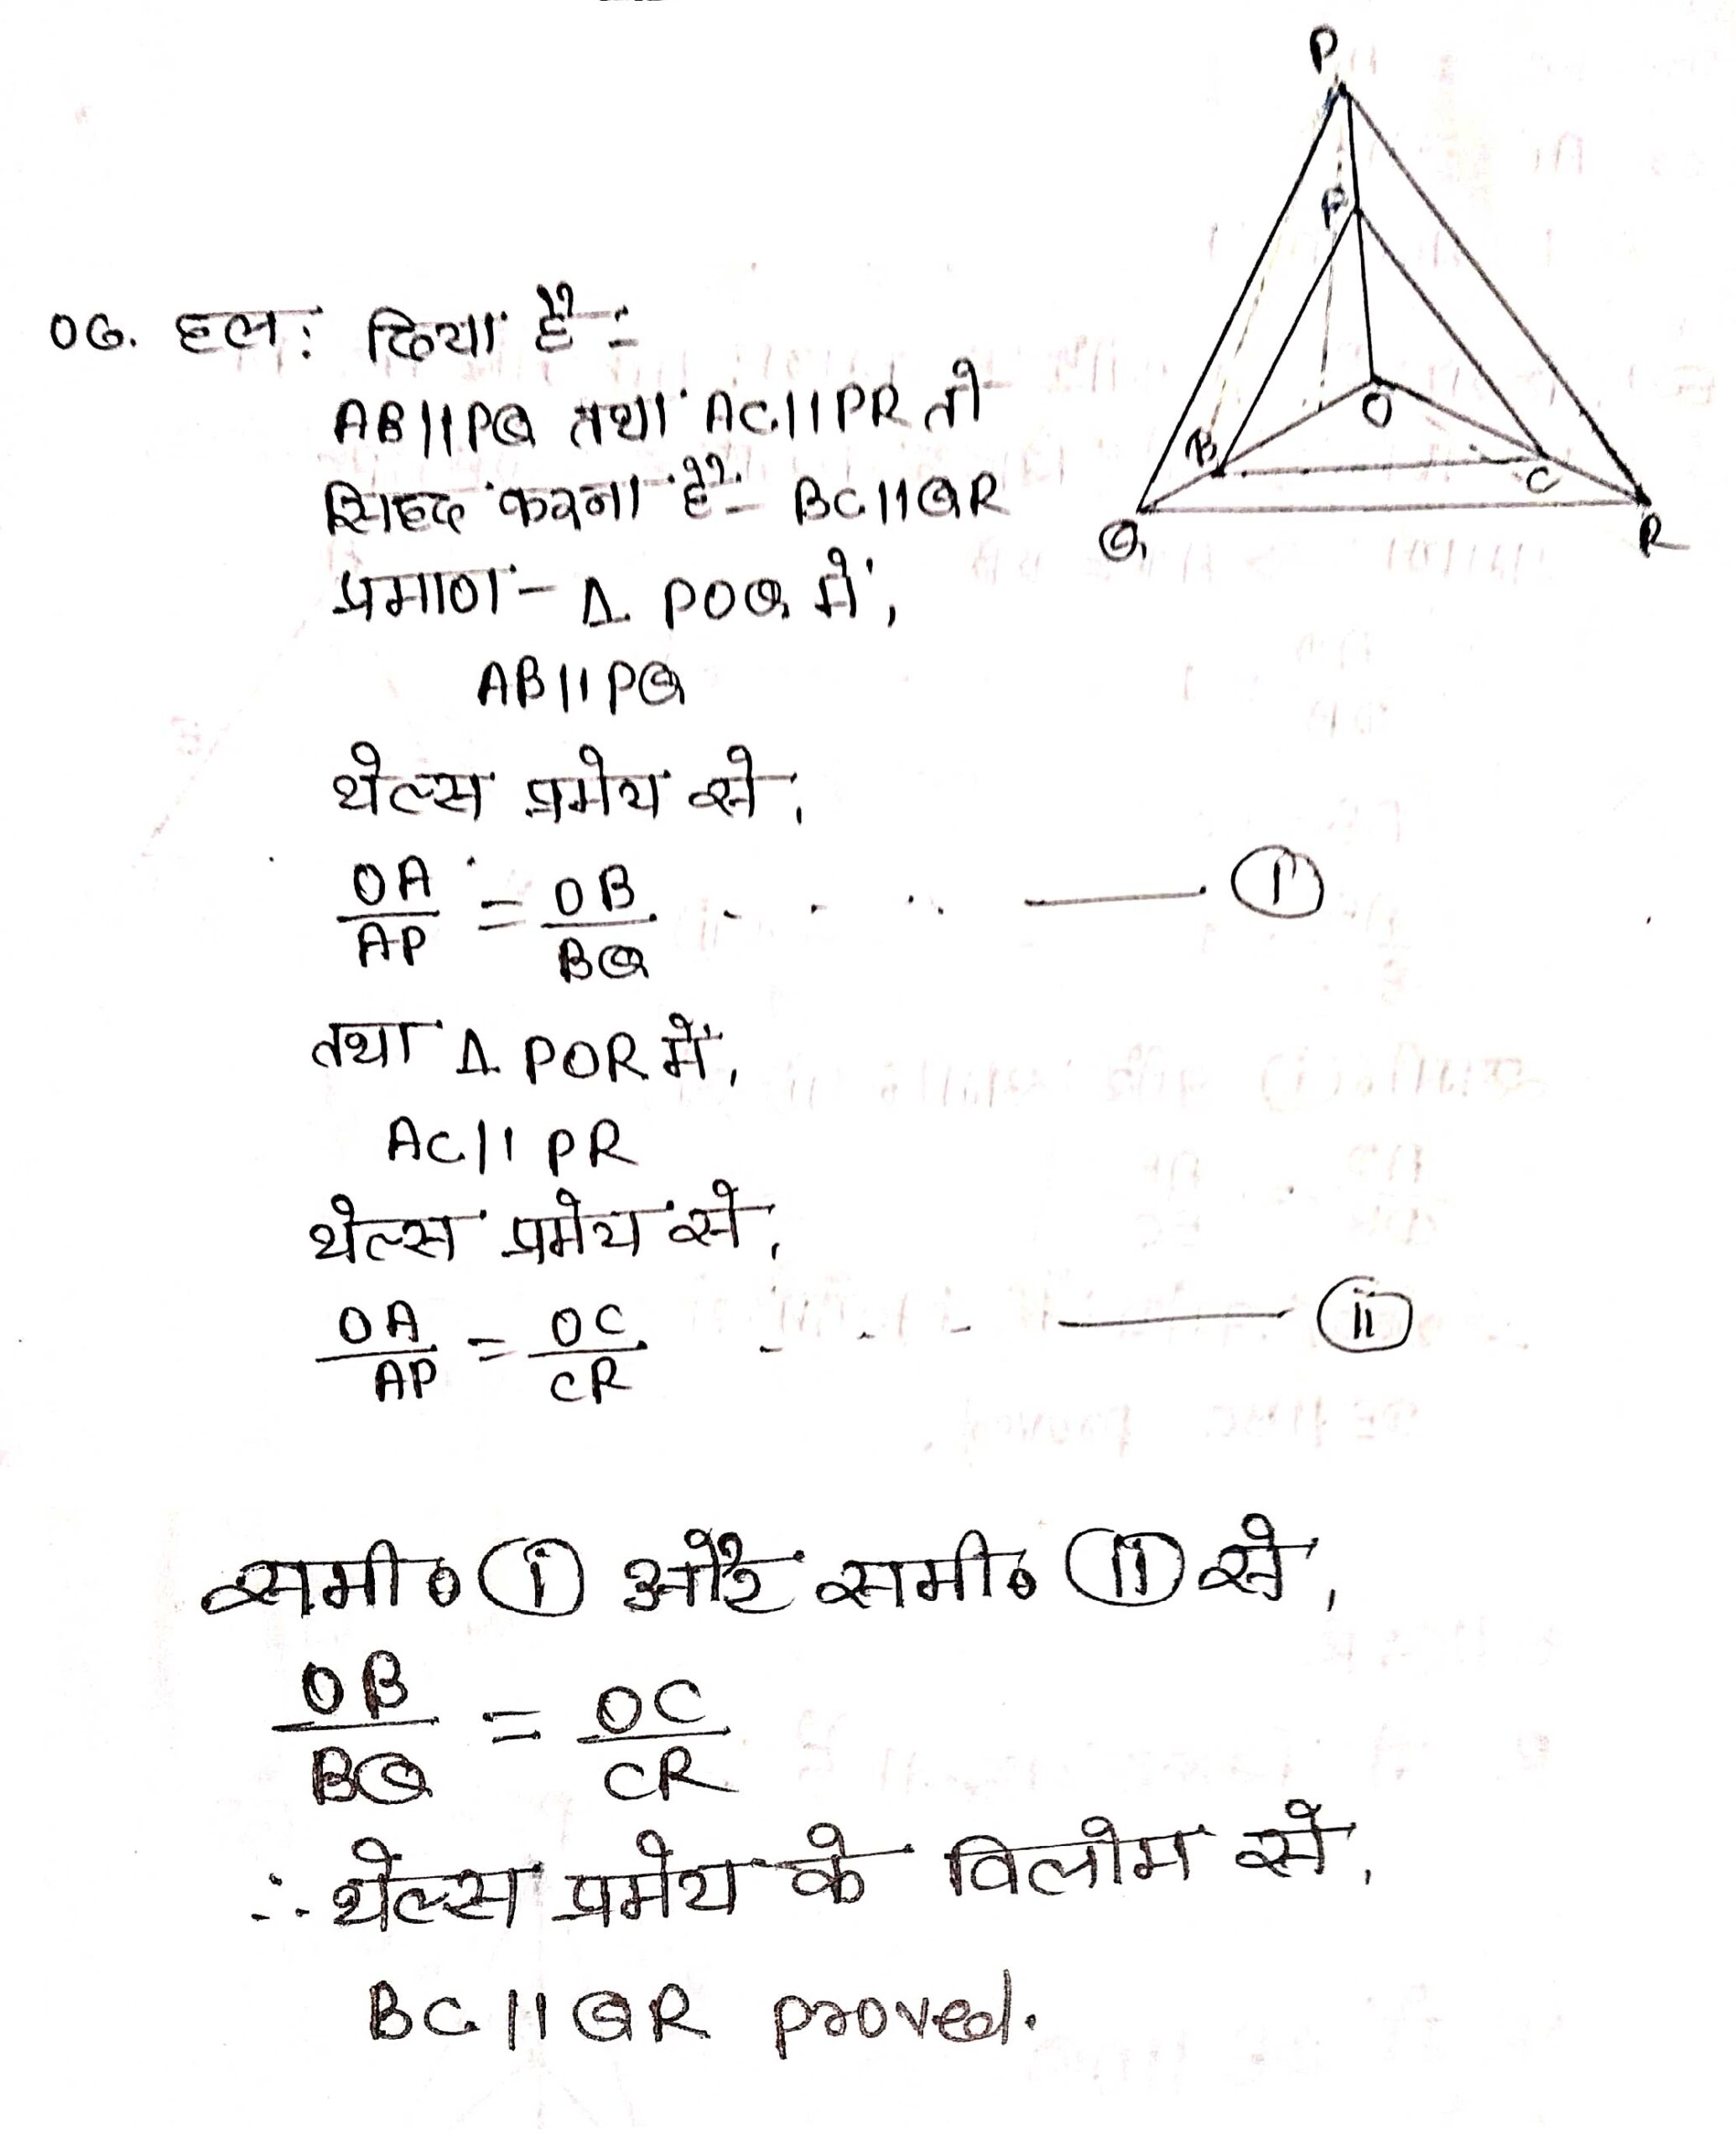 P
A
B
O
C
Q
R
06. हल: दिया है -
AB||PQ तथा AC||PR तो
सिद्ध करना है - BC||QR
प्रमाण - Δ POQ में,
AB||PQ
थेल्स प्रमेय से,
OA/AP = OB/BQ - - - —— (i)
तथा Δ POR में,
AC|| PR
थेल्स प्रमेय से,
OA/AP = OC/CR - - - —— (ii)
समी० (i) और समी० (ii) से,
OB/BQ = OC/CR
∴ थेल्स प्रमेय के विलोम से,
BC||QR proved.